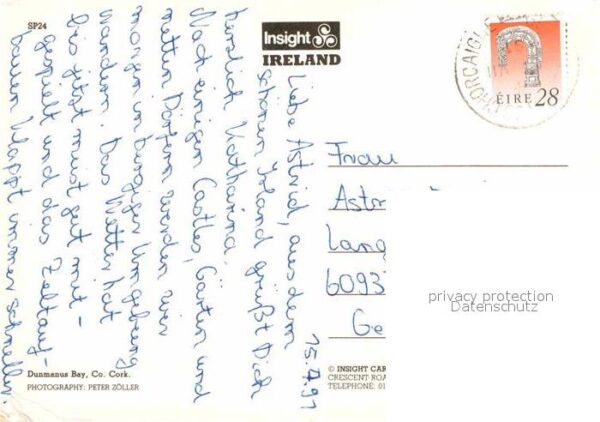 SP24
Insight
IRELAND
CORCAIGH
ÉIRE 28
15.7.91
Liebe Astrid, aus dem
schönen Irland grüßt Dich
herzlich Katharina.
Nach einigen Castles, Gärten und
netten Dörfern werden wir
morgen in bergiger Umgebung
wandern. Das Wetter hat
bis jetzt meist gut mit-
gespielt und das Zeltauf-
bauen klappt immer schneller.
Frau
Astr
Lang
6093
Ge
privacy protection
Datenschutz
Dunmanus Bay, Co. Cork.
PHOTOGRAPHY: PETER ZÖLLER
© INSIGHT CAR
CRESCENT ROA
TELEPHONE: 01